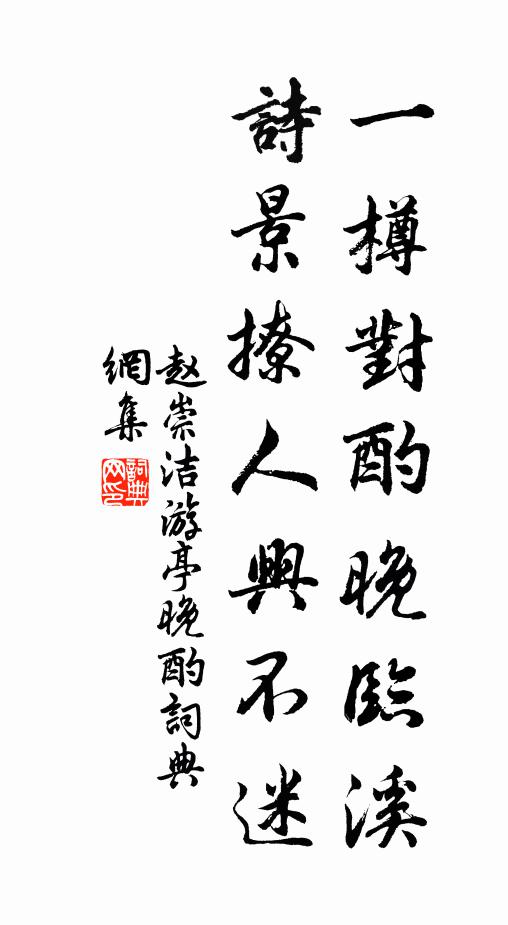 一樽對酌晚臨溪
詩景撩人興不迷
赵崇洁游亭晚酌詞典
網集
詞典
网印